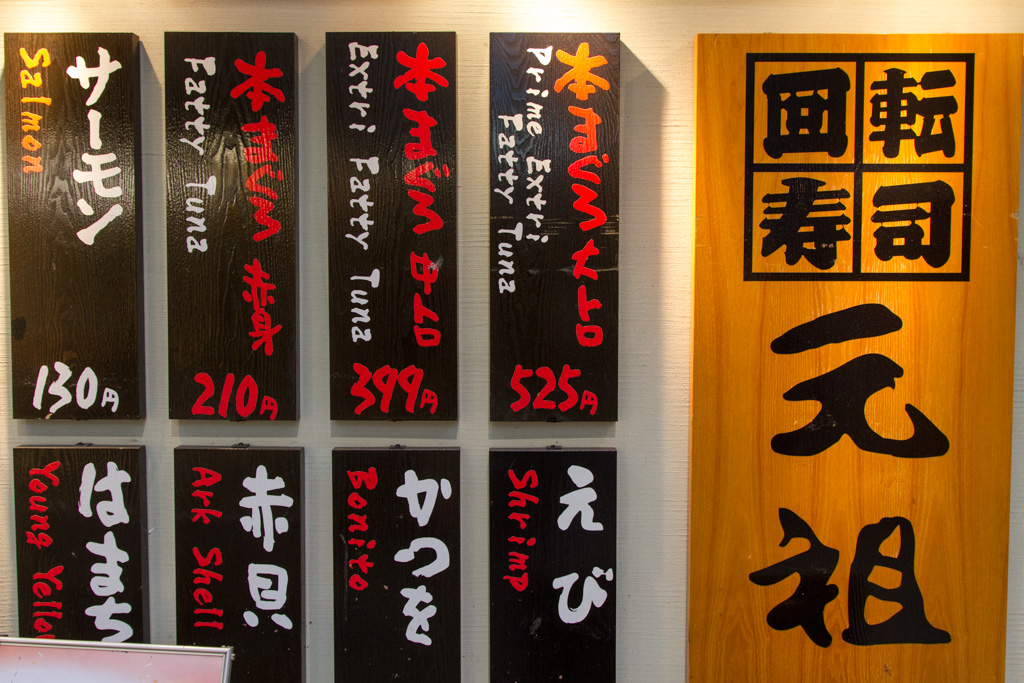 サーモン
Salmon
130円
本まぐろ 赤身
Fatty Tuna
210円
本まぐろ 中トロ
Extri Fatty Tuna
399円
本まぐろ 大トロ
Prime Extri
Fatty Tuna
525円
はまち
Young Yello
赤貝
Ark Shell
かつを
Bonito
えび
Shrimp
回転
寿司
元祖